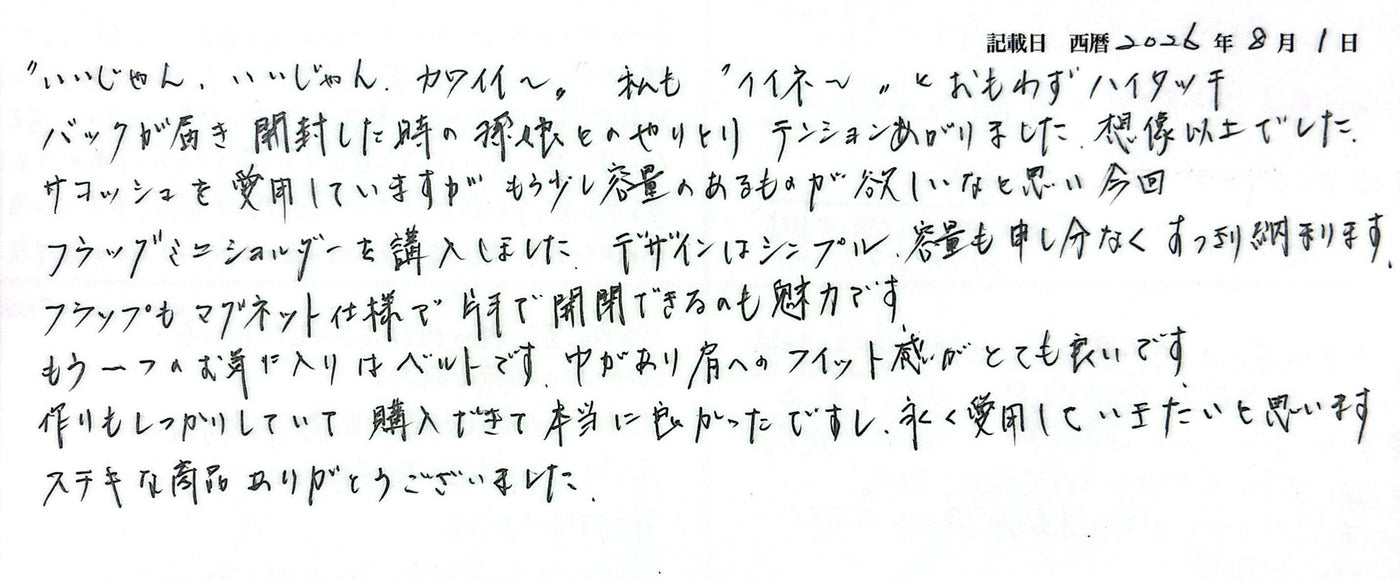 記載日 西暦 2026 年 8 月 1 日
〝いいじゃん、いいじゃん、カワイイ〜〟 私も 〝イイネ〜〟とおもわずハイタッチ
バックが届き 開封した時の孫娘とのやりとり テンションあがりました、想像以上でした、
サコッシュを愛用していますが もう少し容量のあるものが欲しいなと思い 今回
フラッグミニショルダーを講入しました、デザインはシンプル、容量も申し分なく すっきり納まります、
フラップもマグネット仕様で片手で開閉できるのも魅力です
もう一つのお気に入りはベルトです、巾があり肩へのフィット感がとても良いです
作りもしっかりしていて 購入できて本当に良かったですし、永く愛用していきたいと思います
ステキな商品ありがとうございました、